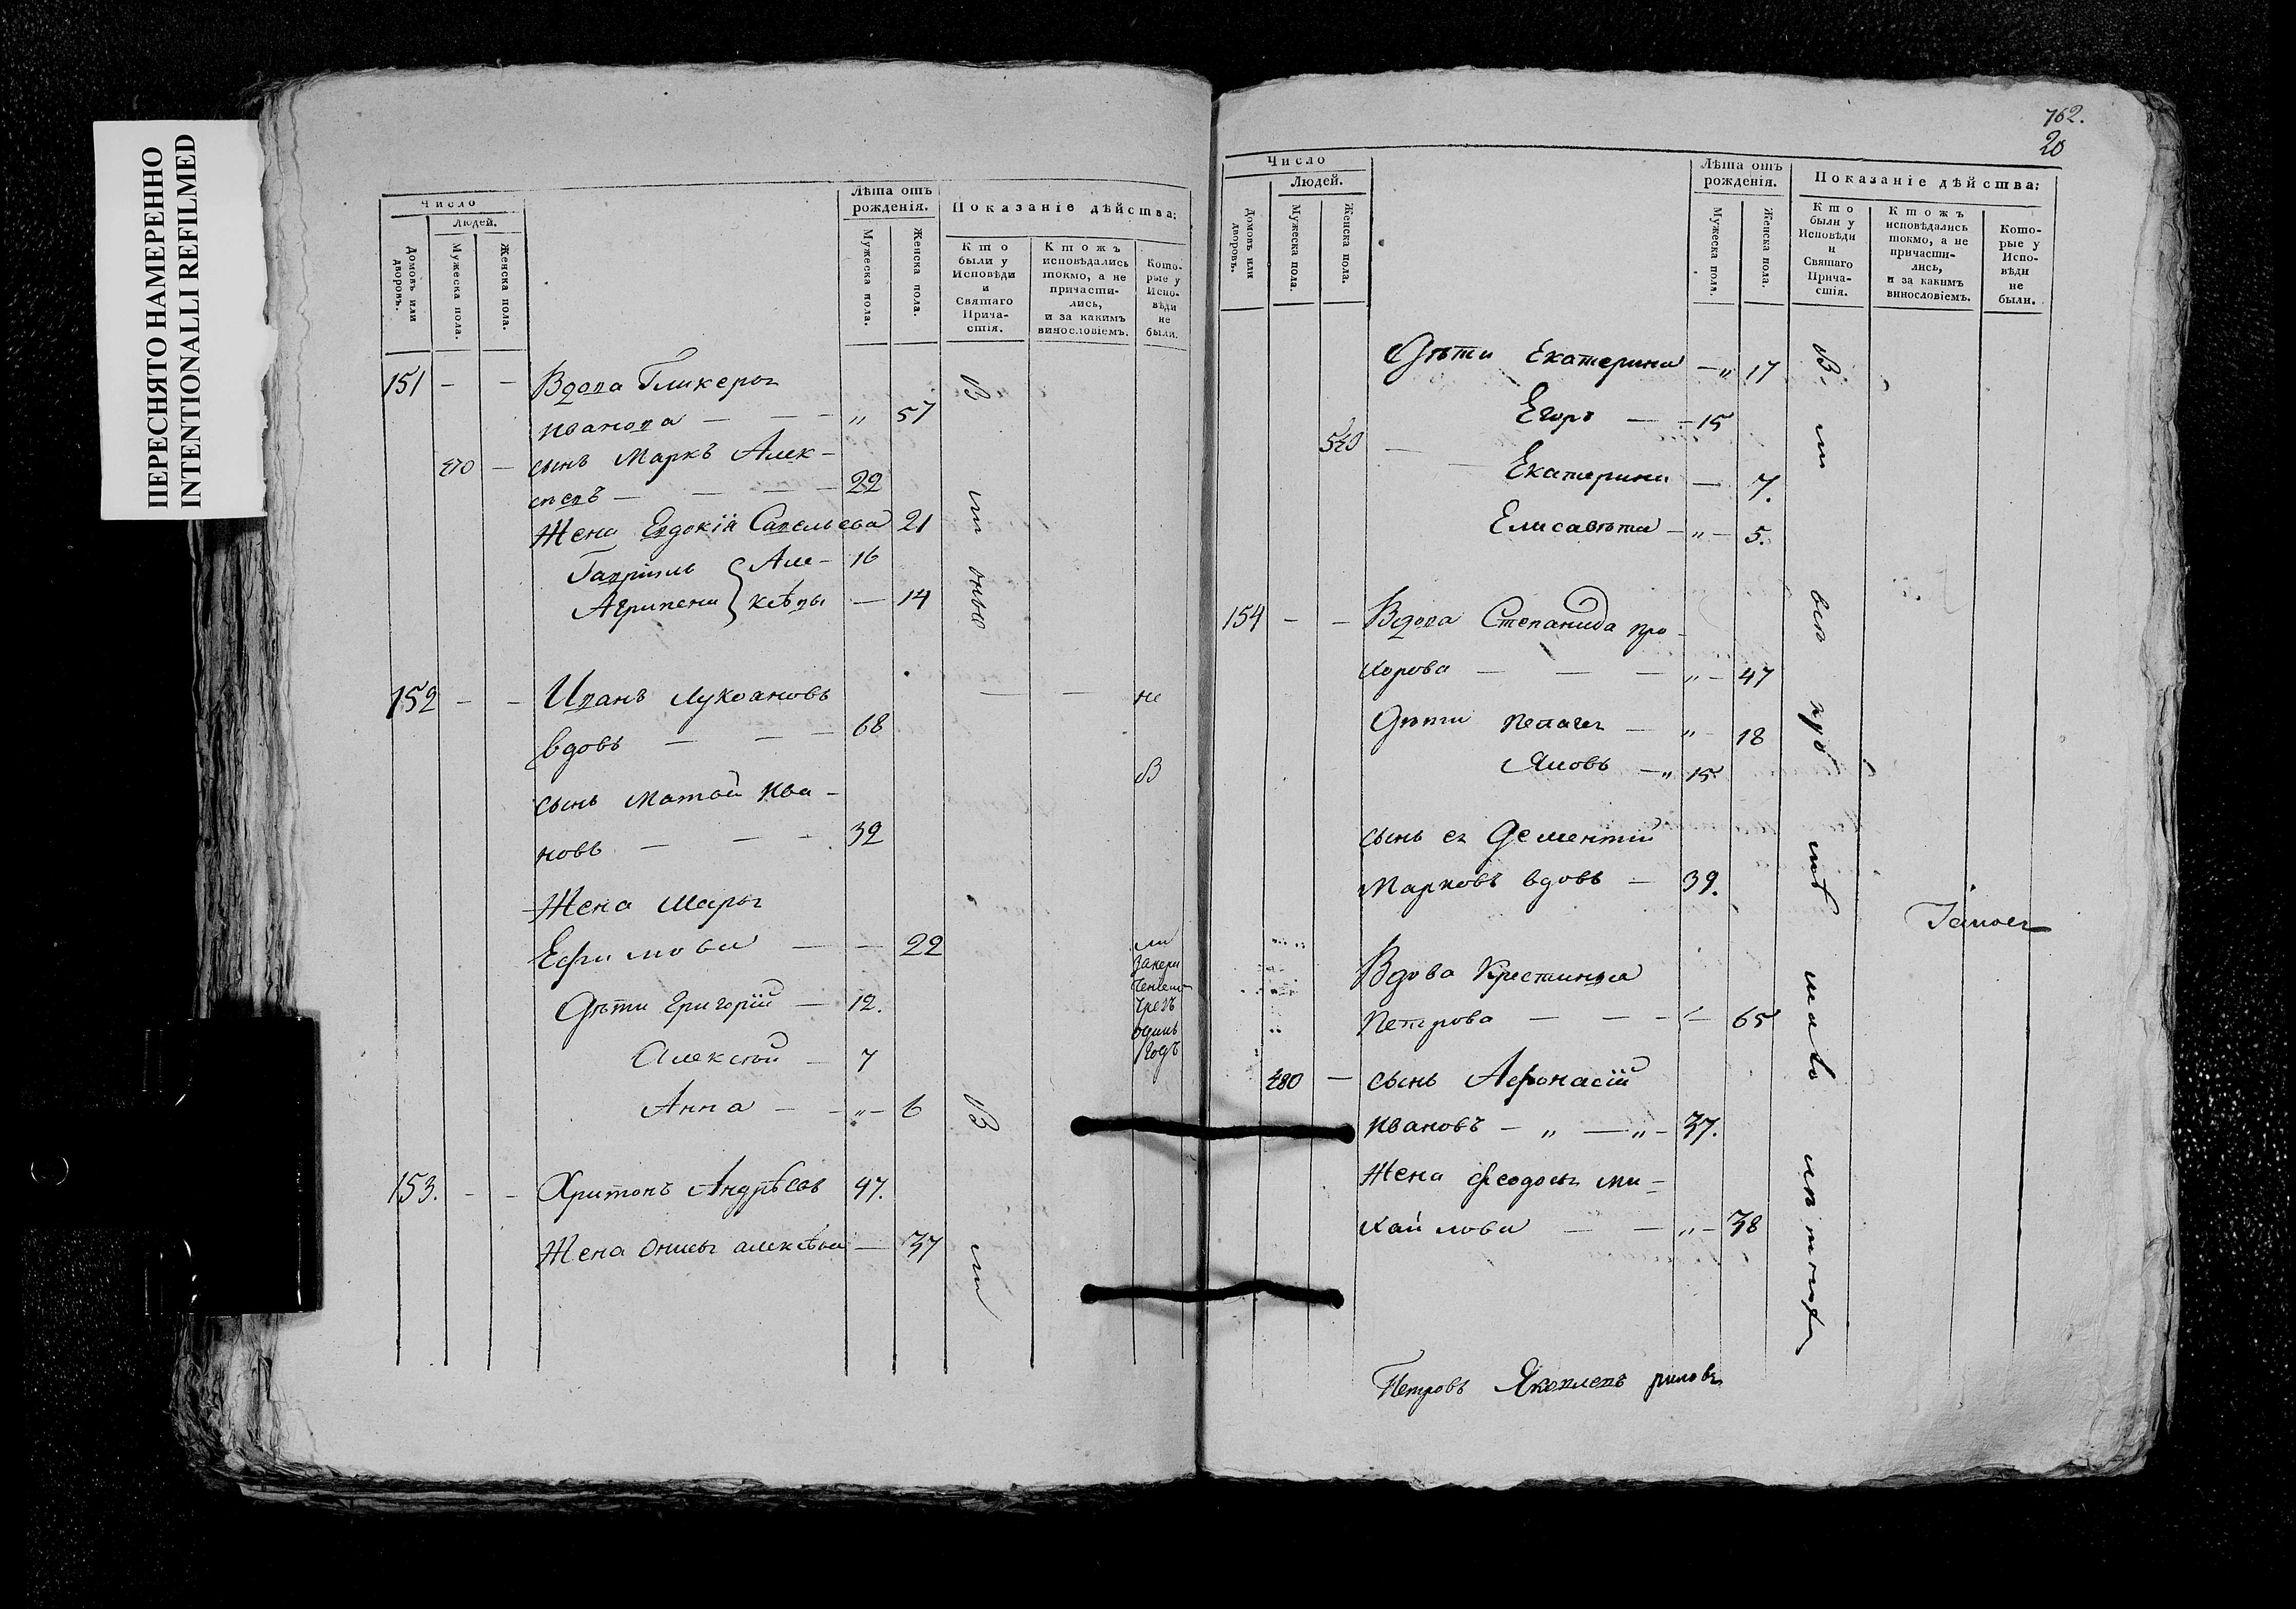 ПЕРЕСНЯТО НАМЕРЕННО
INTENTIONALLI REFILMED
Число
Людей.
Домовъ или дворовъ.
Мужеска пола.
Женска пола.
Лѣта отъ рожденія.
Мужеска пола.
Женска пола.
Показаніе дѣйства:
Кто были у Исповѣди и Святаго Причастія.
Ктожъ исповѣдались токмо, а не причастились, и за какимъ винословіемъ.
Которые у Исповѣди не были.
151 - - Вдова Гликерья
Иванова - - - " 57
470 - сынъ Маркъ Алек-
сѣевъ - - - - 22
Жена Евдокія Савельева 21
Гавріилъ } Але- 16
Агрипена } ксѣевы - 14
152 - - Иванъ Лукоановъ
вдовъ - - - 68
сынъ Матвей Ива-
новъ - - - 32
Жена Марья
Ефимова - - 22
Дѣти Григорій - 12.
Алексей - 7
Анна - - " - 6
153. - - Харитонъ Андрѣевъ 47.
Жена Онисья алексѣева - 37
не
В
одинъ
годъ
762.
20
Число
Людей.
Домовъ или дворовъ.
Мужеска пола.
Женска пола.
Лѣта отъ рожденія.
Мужеска пола.
Женска пола.
Показаніе дѣйства:
Кто были у Исповѣди и Святаго Причастія.
Ктожъ исповѣдались токмо, а не причастились, и за какимъ винословіемъ.
Которые у Исповѣди не были.
Дѣти Екатерина - " 17
Егоръ - - 15
540 -
- Екатерина - 7.
Елисавѣта - " - 5.
154 - - Вдова Степанида про-
хорова - - - " - 47
Дѣти Пелагея - " - 18
Яковъ - " 15.
сынъ ея Дементій
Марковъ вдовъ - 39.
Вдова Крестинья
Петрова - - - - 65
480 - сынъ Афонасій
Ивановъ - " - " - 37.
Жена феодосья ми-
хайлова - - " - 38
Петровъ Яковлевъ